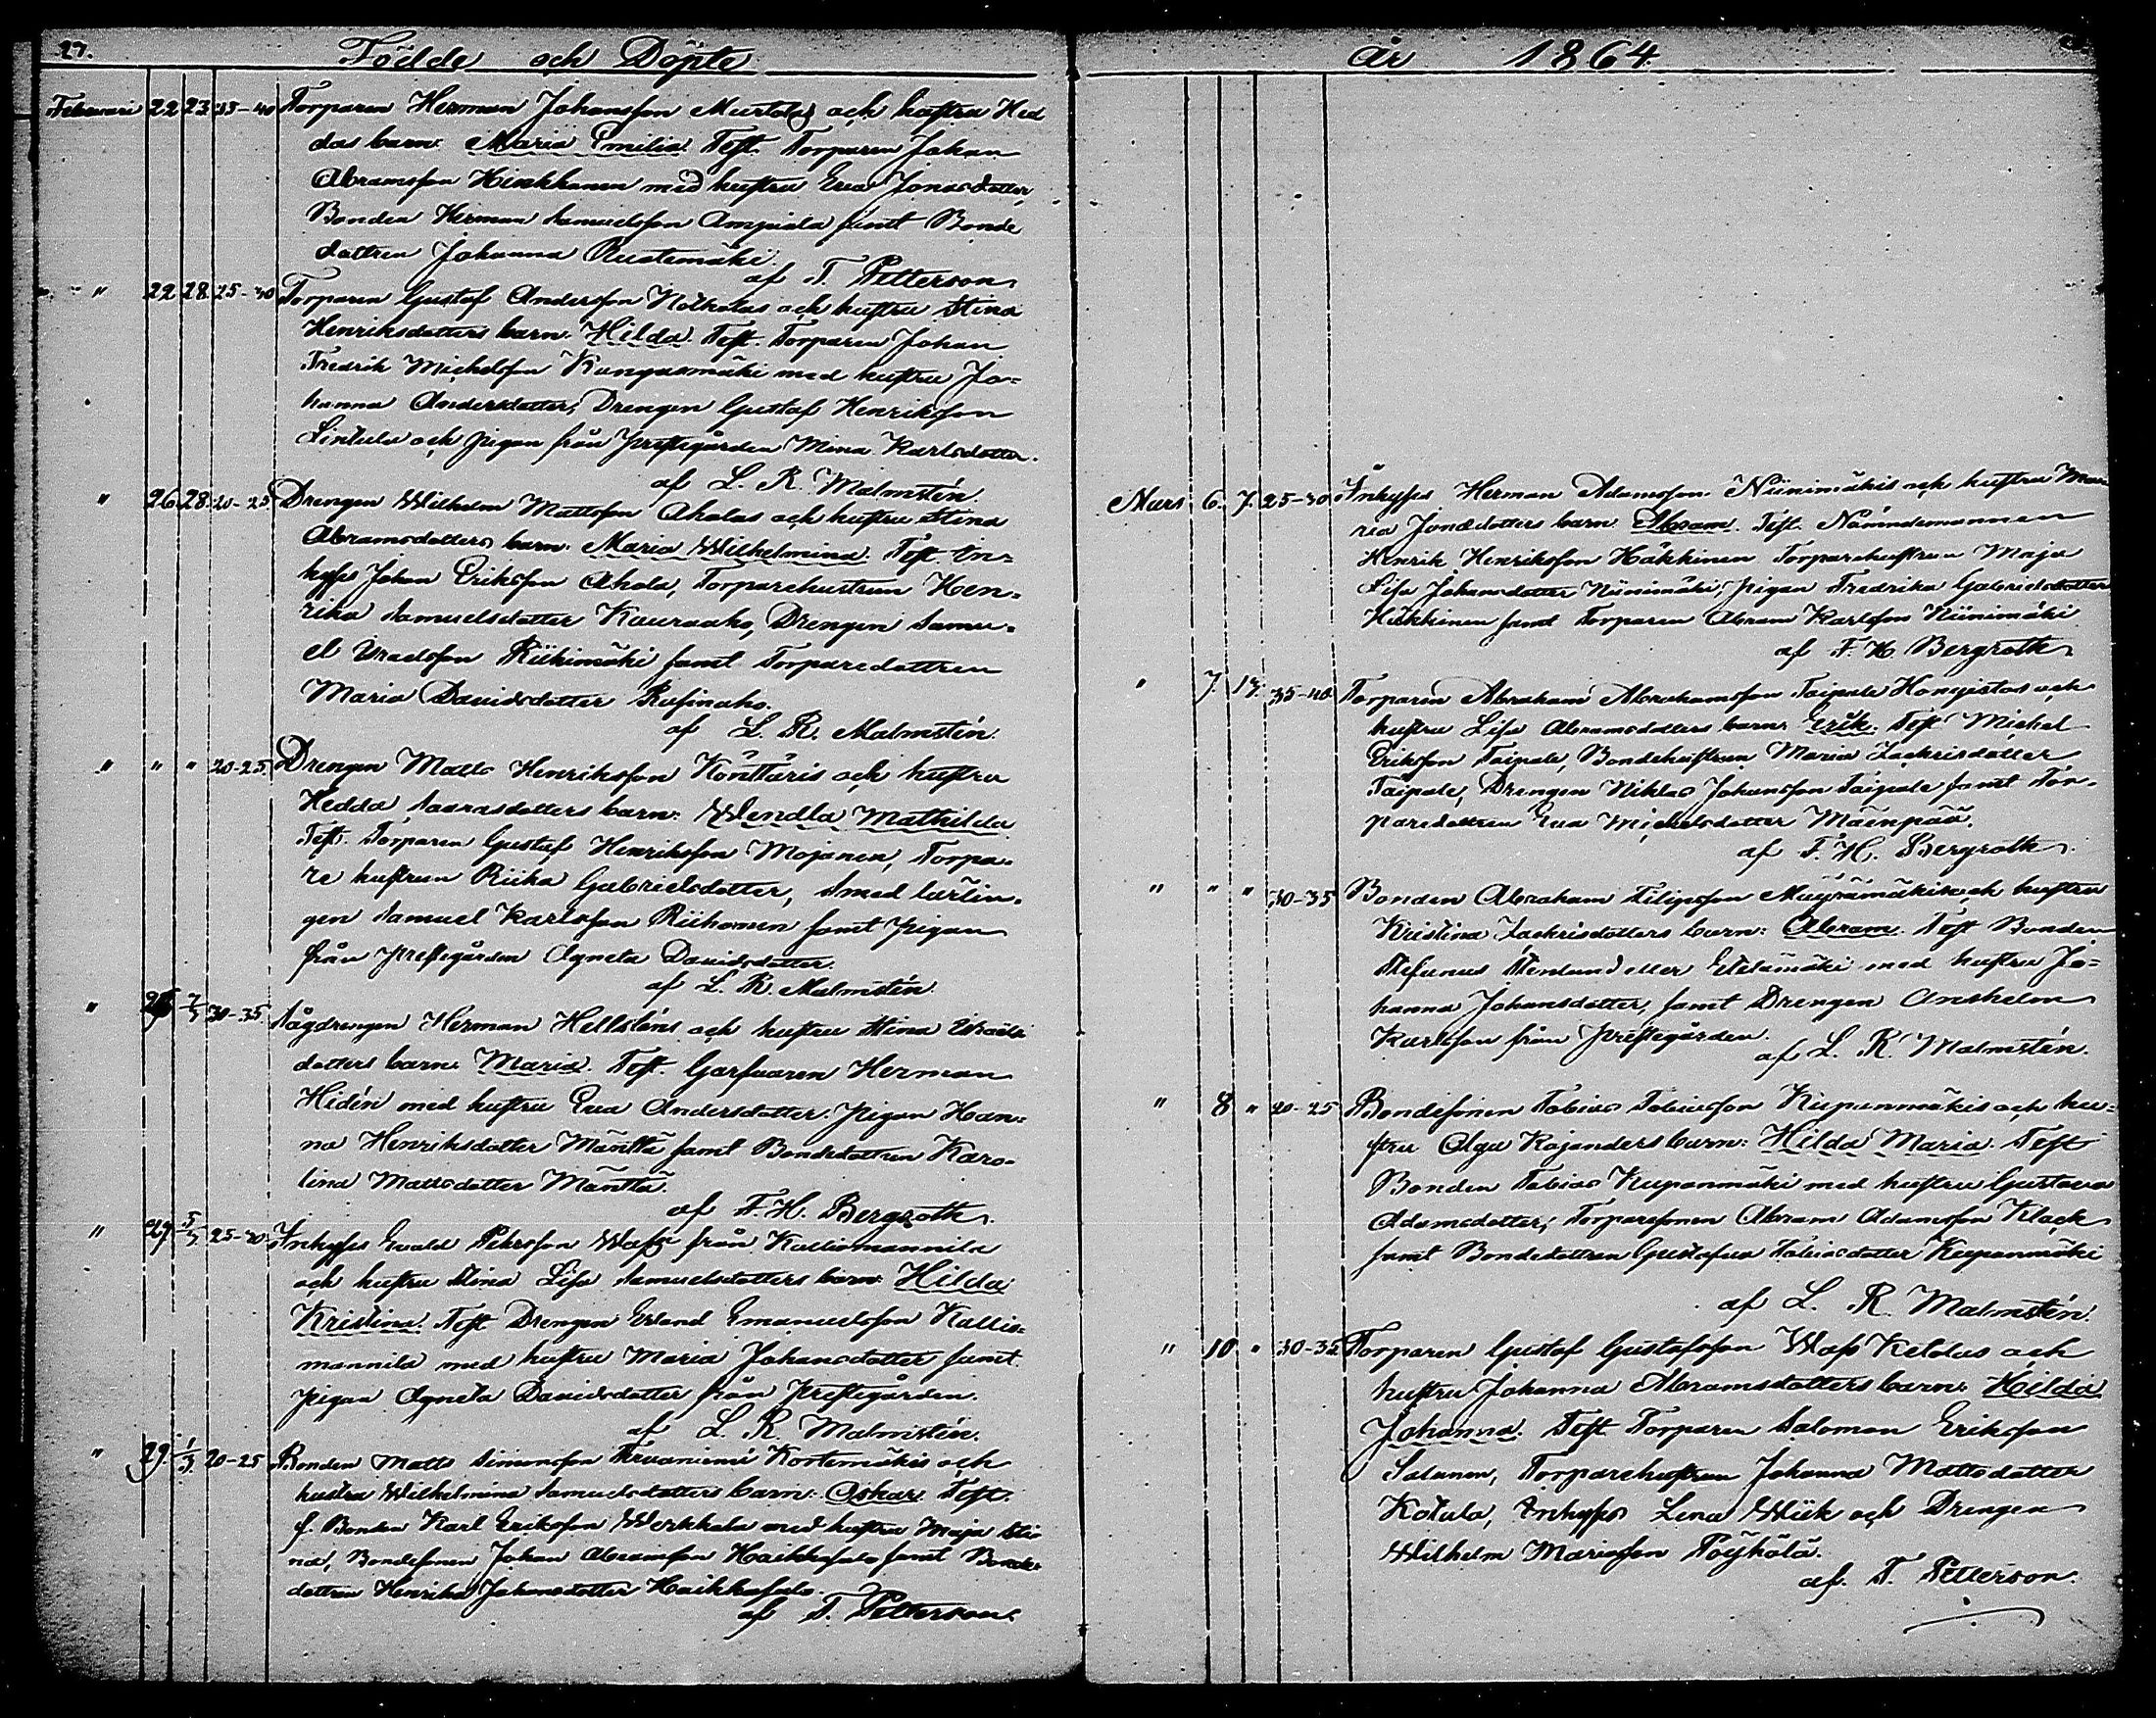 27. Födde och Döpte
Februari 22 23 35-40 Torparen Herman Johansson Murtolas och hustru Hed
das barn: Maria Emilia. Test. Torparen Johan
Abramsson Hirskkanen med hustru Eva Jonasdotter,
Bonden Herman Samuelsson Ampiala samt Bonde
dottren Johanna Rustemäki.
af T. Petterson.
" 22 28 25-30 Torparen Gustaf Andersson Notkolas och hustru Stina
Henriksdotters barn: Hilda. Test. Torparen Johan
Fredrik Michelsson Kangasmäki med hustru Jo=
hanna Andersdotter, Drengen Gustaf Henriksson
Lintula och pigan från Prestegården Mina Karlsdotter.
af L. R. Malmstén.
" 26 28 20-25 Drengen Wilhelm Mattsson Aholas och hustru Stina
Abramsdotters barn: Maria Wilhelmina. Test. In=
hyses Johan Eriksson Ahola, Torparehustrun Hen=
rika Samuelsdotter Kauraaho, Drengen Samu=
el Israelsson Riihimäki samt Torparedottren
Maria Davidsdotter Rusinaho.
af L. R. Malmstén.
" " " 20-25 Drengen Matts Henriksson Könttäris och hustru
Hedda Saarasdotters barn: Wendla Mathilda
Test. Torparen Gustaf Henriksson Mojanen, Torpa=
re hustrun Riika Gabrielsdotter, Smed lärlin=
gen Samuel Karlsson Riihonen samt pigan
från Prestegården Agneta Davidsdotter.
af L. R. Malmstén.
" 7/3 30-35 Sågdrengen Herman Hellsténs och hustru Stina Israels
dotters barn: Maria. Test. Garfvaren Herman
Hidén med hustru Eva Andersdotter, Pigan Han=
na Henriksdotter Mänttä samt Bondedottren Karo=
lina Mattsdotter Mänttä.
af F. H. Bergroth.
" 29 5/3 25-30 Inhyses Evald Petersson Wass från Kalliomannila
och hustru Stina Lisa Samuelsdotters barn: Hilda
Kristina. Test. Drengen Erland Emanuelsson Kallio=
mannila med hustru Maria Johansdotter samt
pigan Agneta Davidsdotter från Prestegården.
af L. R. Malmstén.
" 29. 1/3 20-25 Bonden Matts Simonsson Kortemäkis och
hustru Wilhelmina Samuelsdotters barn: Oskar. Test.
f. Bonden Karl Eriksson Werkkala med hustru Maja Sti
na, Bondesonen Johan Abramsson Haikkasalo samt Bonde
dottren Henrika Johansdotter Haikkasalo.
af T. Petterson.
år 1864.
Mars 6. 7. 25-30 Inhyses Herman Adamsson Niinimäkis och hustru Ma
ria Jonædotters barn: Abram. Test. Nämndemannen
Henrik Henriksson Häkkinen Torparehustrun Maja
Lisa Johansdotter Niinimäki, pigan Fredrika Gabrielsdotter
Häkkinen samt Torparen Abram Karlsson Niinimäki
af F. H. Bergroth.
" 7. 13. 35-40 Torparen Abraham Abrahamsson Taipale Hongistos och
hustru Lisa Abramsdotters barn: Erik. Test. Michel
Eriksson Taipale, Bondehustrun Maria Zachrisdotter
Taipale, Drengen Niklas Johansson Taipale samt Tor=
paredottren Eva Michelsdotter Mäenpää.
af F. H. Bergroth.
" " " 30-35 Bonden Abraham Filipsson Mäyrämäkis och hustru
Kristina Zachrisdotters barn: Abram. Test. Bonden
Stefanus Stenlund eller Etelämäki med hustru Jo=
hanna Johansdotter, samt Drengen Anshelm
Karlsson från Prestegården.
af L. R. Malmstén.
" 8 " 20-25 Bondesonen Tobias Tobiasson Kupanmäkis och hu=
stru Olga Kajanders barn: Hilda Maria. Test.
Bonden Tobias Kupanmäki med hustru Gustava
Adamsdotter, Torparesonen Abram Adamsson Klack
samt Bondedottren Gustafva Tobiasdotter Kupanmäki
af L. R. Malmstén.
" 10 " 30-35 Torparen Gustaf Gustafsson Wass Ketolas och
hustru Johanna Abramsdotters barn: Hilda
Johanna. Test. Torparen Salomon Eriksson
Salonen, Torparehustrun Johanna Mattsdotter
Kotula, Inhyses Lena Wiik och Drengen
Wilhelm Mariasson Pöyhölä.
af T. Petterson.